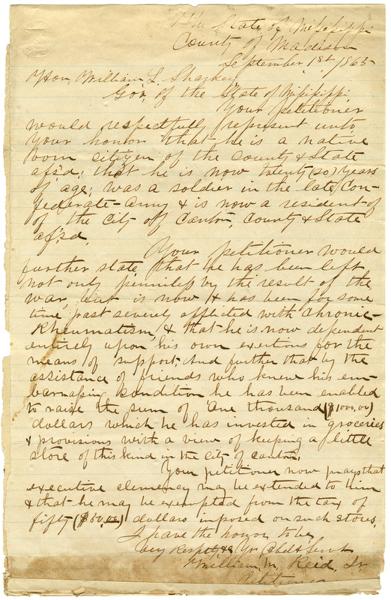 The State of Mississippi
County of Madison
September 1st / 1865
Hon William L. Sharkey
Gov, of the State of Mississippi
Your petitioner
would respectfully represent unto
your honor that he is a native
born citizen of the County & State
afs'd; that he is now twenty (20) years
of age; was a soldier in the late Con-
federate Army & is now a resident of
of the City of Canton, County & State
afs'd.
Your petitioner would
further state, that he has been left
not only penniless by the result of the
war, but is now & has been for some
time past severely afflicted with Chronic-
Rheumatism, & that he is now dependent
entirely upon his own exertions for the
means of support; And further that by the
assistance of friends who knew his em-
barrassing condition he has been enabled
to raise the sum of One thousand ($1000,00)
dollars which he has invested in groceries
& provisions with a view of keeping a little
store of this kind in the City of Canton.
Your petitioner now prays that
executive clemency may be extended to him
& that he may be exempted from the tax of
fifty ($50,00) dollars imposed on such stores.
I have the honor to be
Very Respt &c Yr Obdt Servt
William M. Reid Jr
Petitioner